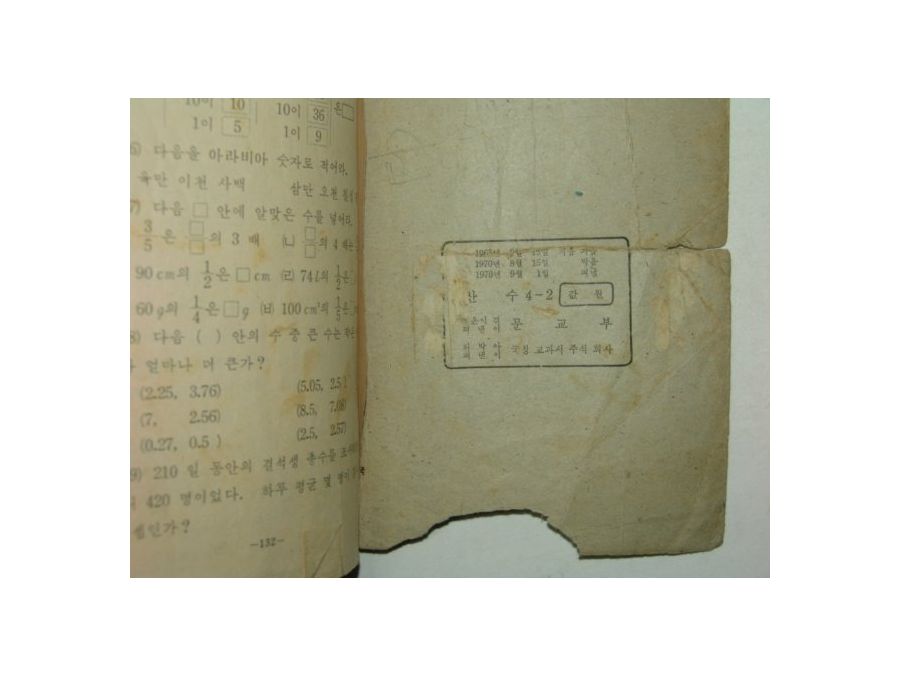 10이 10 10이 36 은 □
1이 5 1이 9
다음을 아라비아 숫자로 적어라.
육만 이천 사백 삼만 오천
다음 □ 안에 알맞은 수를 넣어라.
3/5 은 □/□ 의 3 배 (ㄴ) □/□ 의 4
90 cm의 1/2 은 □ cm (ㄹ) 74 l의 1/2 은 □
60 g의 1/4 은 □ g (ㅂ) 100 cm³의 1/5 은
다음 ( ) 안의 수 중 큰 수는
얼마나 더 큰가?
(2.25, 3.76) (5.05,
(7, 2.56) (8.5, 7.08)
(0.27, 0.5 ) (2.5, 2.57)
210 일 동안의 결석생 총수를
420 명이었다. 하루 평균 몇 명이
셈인가?
—132—
1970년 8월 15일 박음
1970년 9월 1일 펴냄
산 수 4-2 값 원
펴낸이 문 교 부
펴낸이 국정 교과서 주식 회사